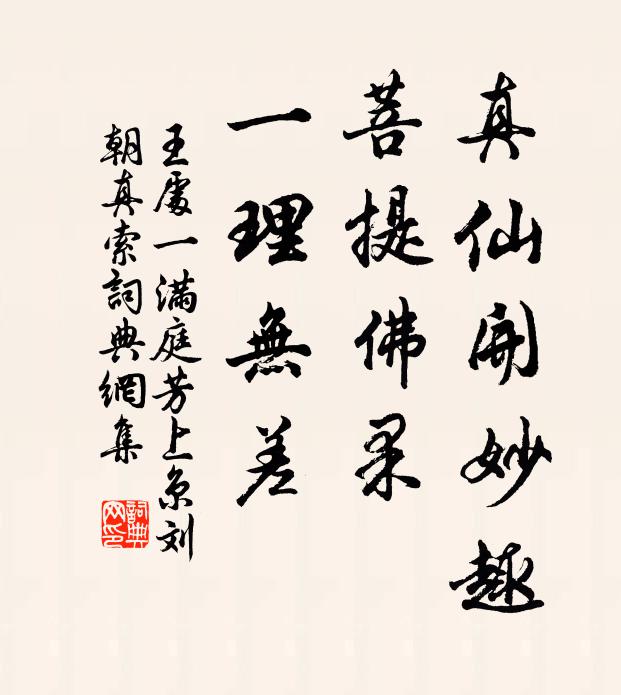 真仙開妙趣
菩提佛果
一理無差
王處一滿庭芳上京刘
朝真索詞典網集
詞典网印